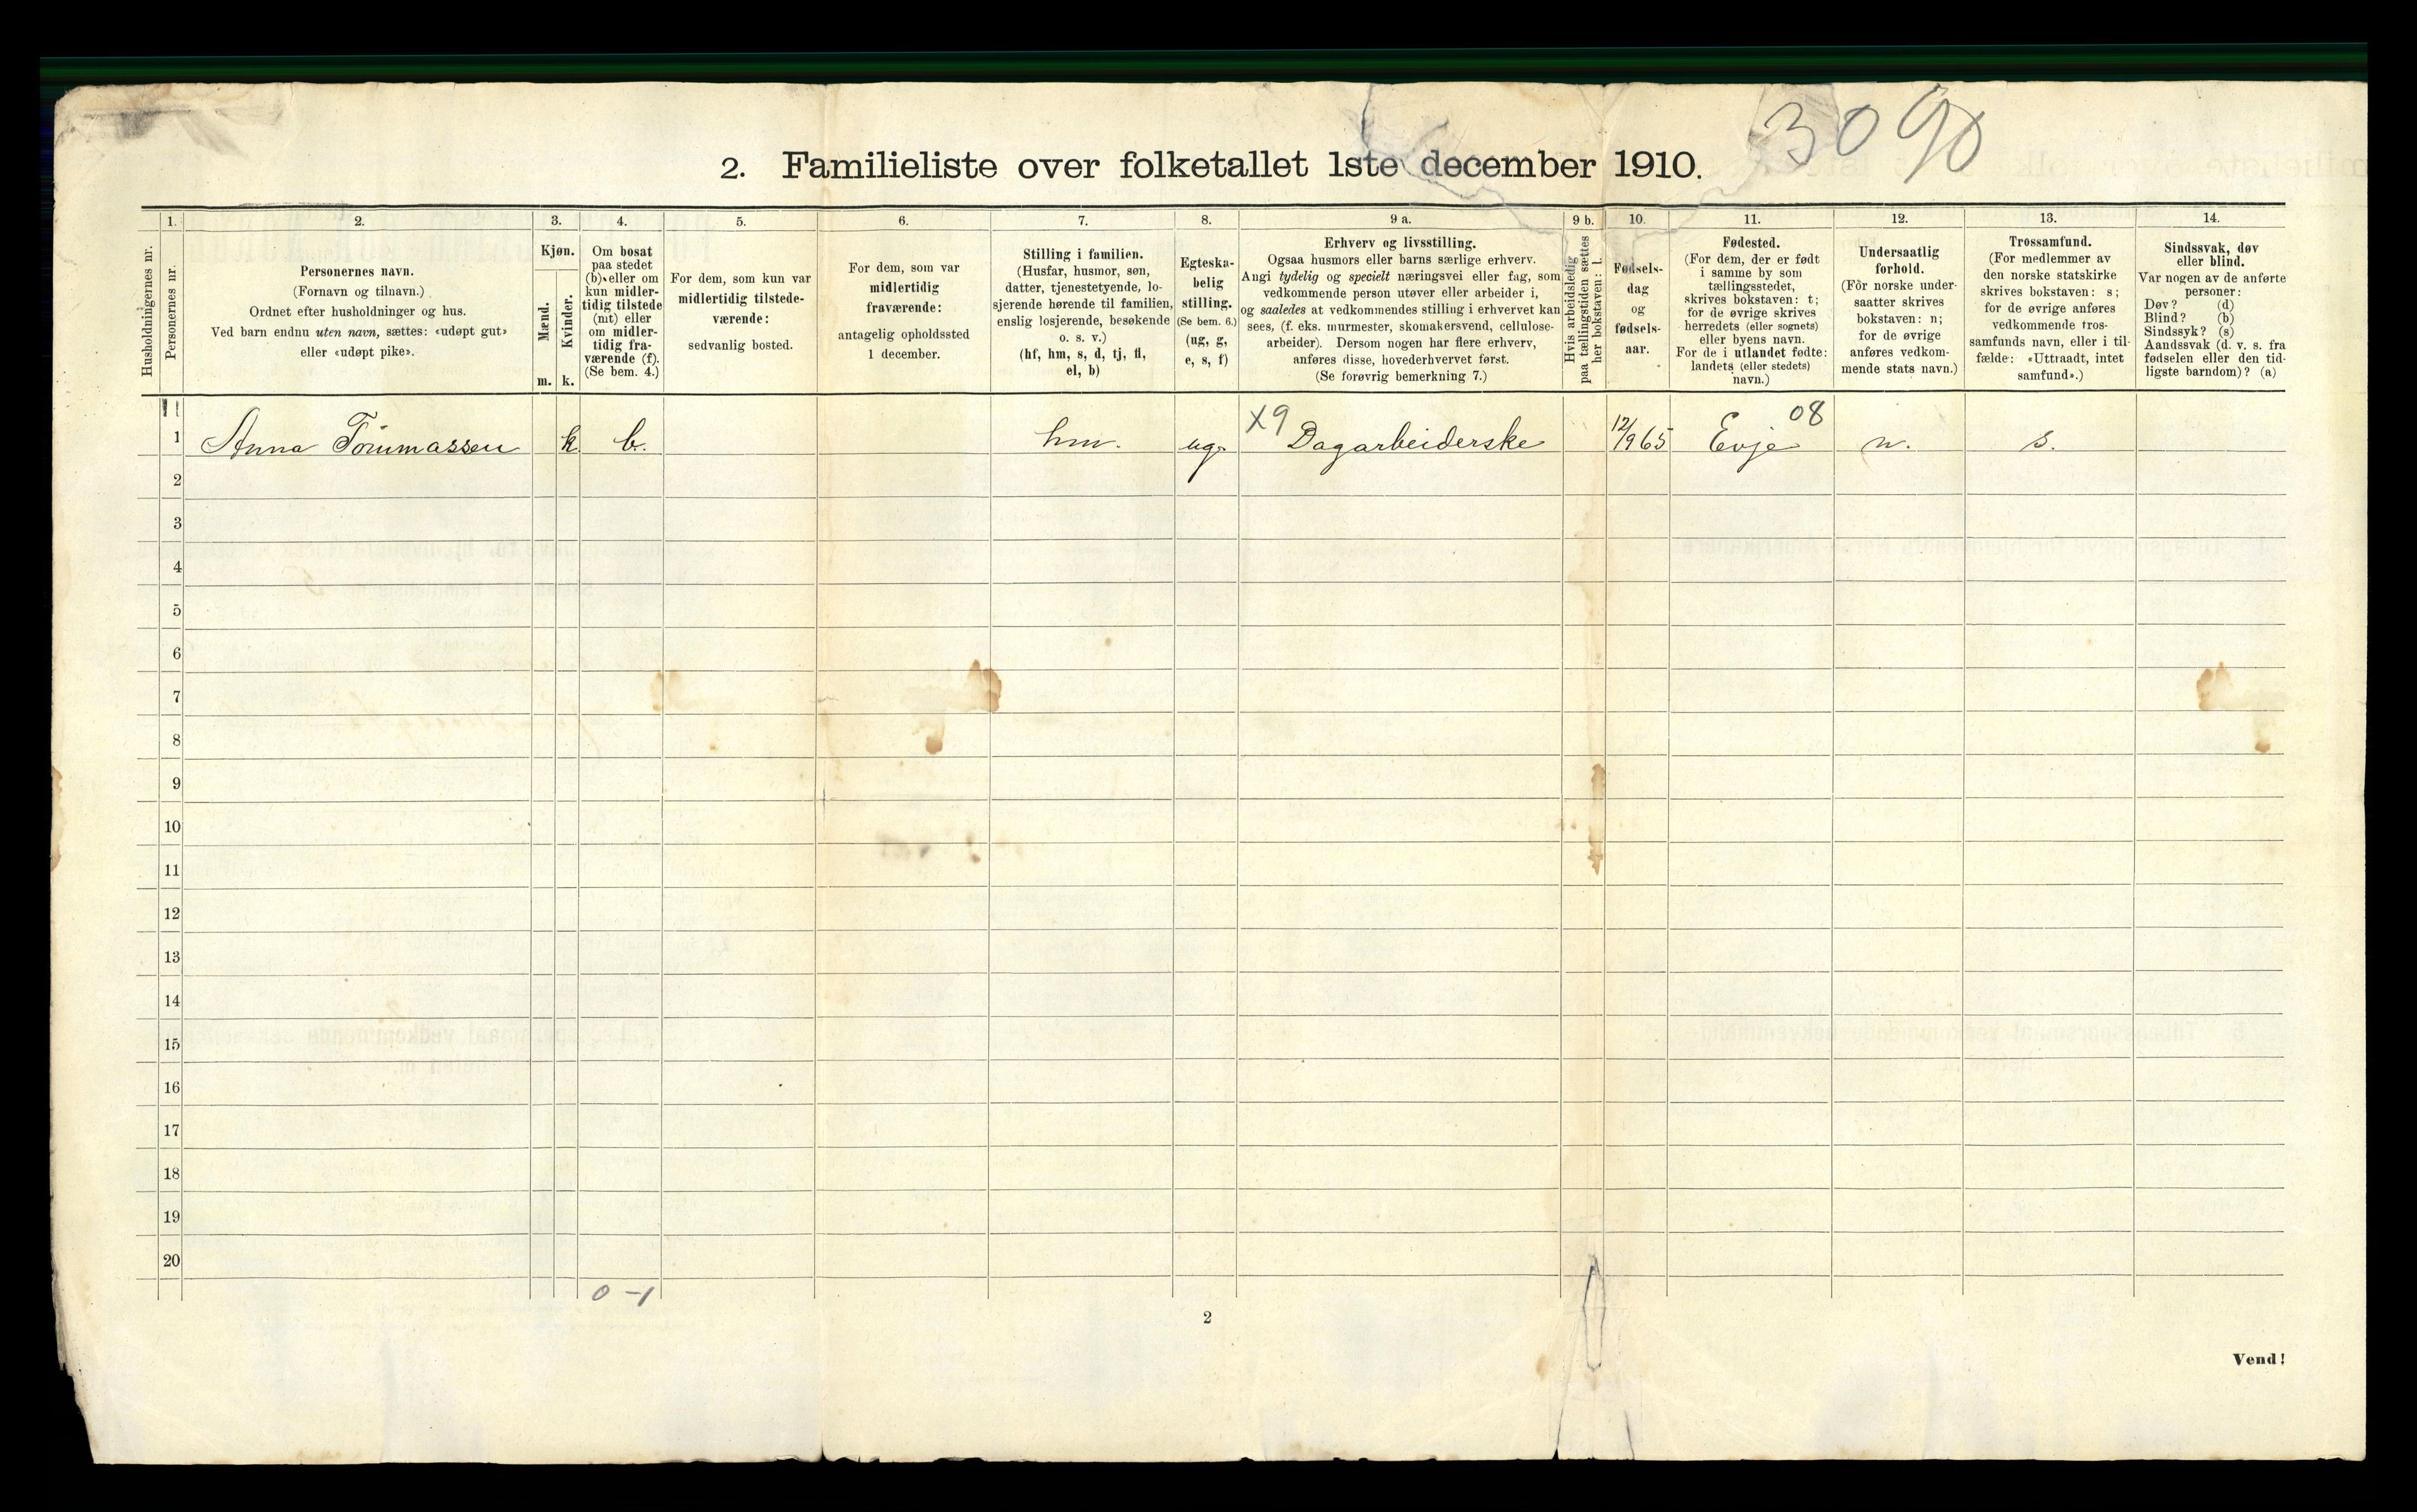 3090
2. Familieliste over folketallet 1ste december 1910.
Husholdningernes nr.
1.
Personernes nr.
2.
Personernes navn.
(Fornavn og tilnavn.)
Ordnet efter husholdninger og hus.
Ved barn endnu uten navn, sættes: «udøpt gut»
eller «udøpt pike».
3.
Kjøn.
Mænd.
m.
Kvinder.
k.
4.
Om bosat
paa stedet
(b) eller om
kun midler-
tidig tilstede
(mt) eller
om midler-
tidig fra-
værende (f).
(Se bem. 4.)
5.
For dem, som kun var
midlertidig tilstede-
værende:
sedvanlig bosted.
6.
For dem, som var
midlertidig
fraværende:
antagelig opholdssted
1 december.
7.
Stilling i familien.
(Husfar, husmor, søn,
datter, tjenestetyende, lo-
sjerende hørende til familien,
enslig losjerende, besøkende
o. s. v.)
(hf, hm, s, d, tj, fl,
el, b)
8.
Egteska-
belig
stilling.
(Se bem. 6.)
(ug, g,
e, s, f)
9 a.
Erhverv og livsstilling.
Ogsaa husmors eller barns særlige erhverv.
Angi tydelig og specielt næringsvei eller fag, som
vedkommende person utøver eller arbeider i,
og saaledes at vedkommendes stilling i erhvervet kan
sees, (f. eks. murmester, skomakersvend, cellulose-
arbeider). Dersom nogen har flere erhverv,
anføres disse, hovederhvervet først.
(Se forøvrig bemerkning 7.)
9 b.
Hvis arbeidsledig
paa tællingstiden sættes
her bokstaven: l.
10.
Fødsels-
dag
og
fødsels-
aar.
11.
Fødested.
(For dem, der er født
i samme by som
tællingsstedet,
skrives bokstaven: t;
for de øvrige skrives
herredets (eller sognets)
eller byens navn.
For de i utlandet fødte:
landets (eller stedets)
navn.)
12.
Undersaatlig
forhold.
(For norske under-
saatter skrives
bokstaven: n;
for de øvrige
anføres vedkom-
mende stats navn.)
13.
Trossamfund.
(For medlemmer av
den norske statskirke
skrives bokstaven: s;
for de øvrige anføres
vedkommende tros-
samfunds navn, eller i til-
fælde: «Uttraadt, intet
samfund».)
14.
Sindssvak, døv
eller blind.
Var nogen av de anførte
personer:
Døv? (d)
Blind? (b)
Sindssyk? (s)
Aandssvak (d. v. s. fra
fødselen eller den tid-
ligste barndom)? (a)
1 Anna Tommassen k b. hm. ug. X9 Dagarbeiderske 12/9 65 Evje 08 n. s.
2
3
4
5
6
7
8
9
10
11
12
13
14
15
16
17
18
19
20
0 - 1
2
Vend!